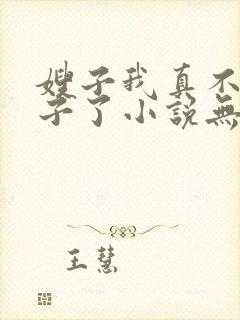 嫂子我真不
子了小說無
王慧